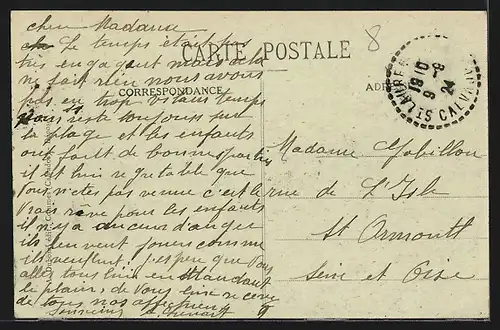 cher Madame
Le temps était pas
très engageant mais cela
ne fait rien nous avons
pas eu trop vilain temps
on reste toujours sur
la plage et les enfants
ont fait de bonnes parties
il est bien regretable que
vous n'etes pas venue c'est le
vrais rêve pour les enfants
il n'y a aucun danger
ils peuvent jouers comme
ils veulent j'espere que vous
allez tous bien en attendant
le plaisir de vous lire recever
de tous nos affections
CARTE POSTALE
CORRESPONDANCE
8
19 10
9 - 9
24
ST LAURENT CALVADOS
Madame
rue de L'Isle
St Ormontt
Seine et Oise